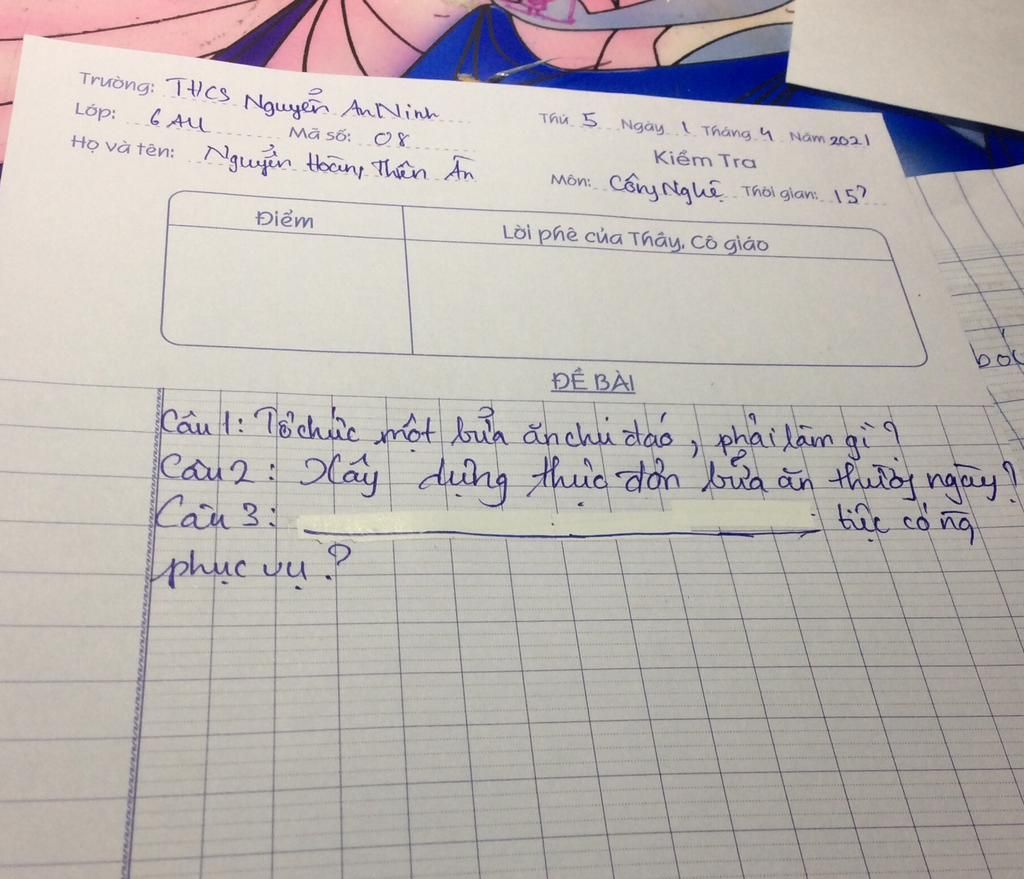 Trường: THCS Nguyễn An Ninh
Lớp: 6A11 Mã số: 08
Họ và tên: Nguyễn Hoàng Thiên Ân
Thứ 5 Ngày 1 Tháng 4 Năm 2021
Kiểm Tra
Môn: Công Nghệ Thời gian: 15'
Điểm
Lời phê của Thầy, Cô giáo
ĐỀ BÀI
Câu 1: Tổ chức một bữa ăn chu đáo, phải làm gì?
Câu 2: Xây dựng thực đơn bữa ăn thường ngày?
Câu 3: tiệc có ng
phục vụ.?